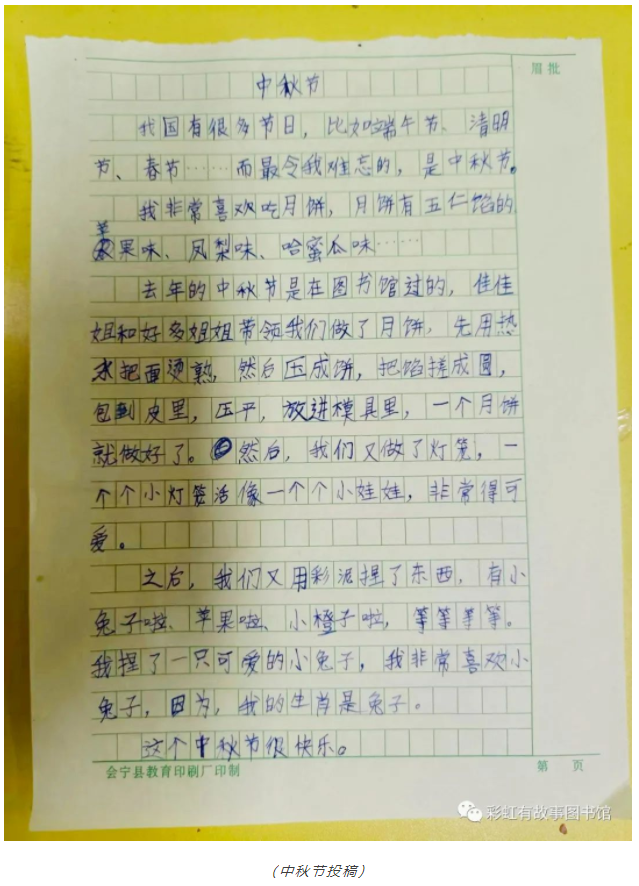 眉批
中秋节
我国有很多节日，比如端午节、清明
节、春节……而最令我难忘的，是中秋节。
我非常喜欢吃月饼，月饼有五仁馅的
苹果味、凤梨味、哈蜜瓜味……
去年的中秋节是在图书馆过的，佳佳
姐和好多姐姐带领我们做了月饼，先用热
水把面烫熟，然后压成饼，把馅搓成圆，
包到皮里，压平，放进模具里，一个月饼
就做好了。然后，我们又做了灯笼，一
个个小灯笼活像一个个小娃娃，非常得可
爱。
之后，我们又用彩泥捏了东西，有小
兔子啦、苹果啦、小橙子啦，等等等等。
我捏了一只可爱的小兔子，我非常喜欢小
兔子，因为，我的生肖是兔子。
这个中秋节很快乐。
会宁县教育印刷厂印制
第 页
彩虹有故事图书馆
（中秋节投稿）